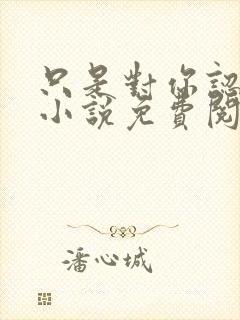 只是對你認
小說免費閱
潘心城